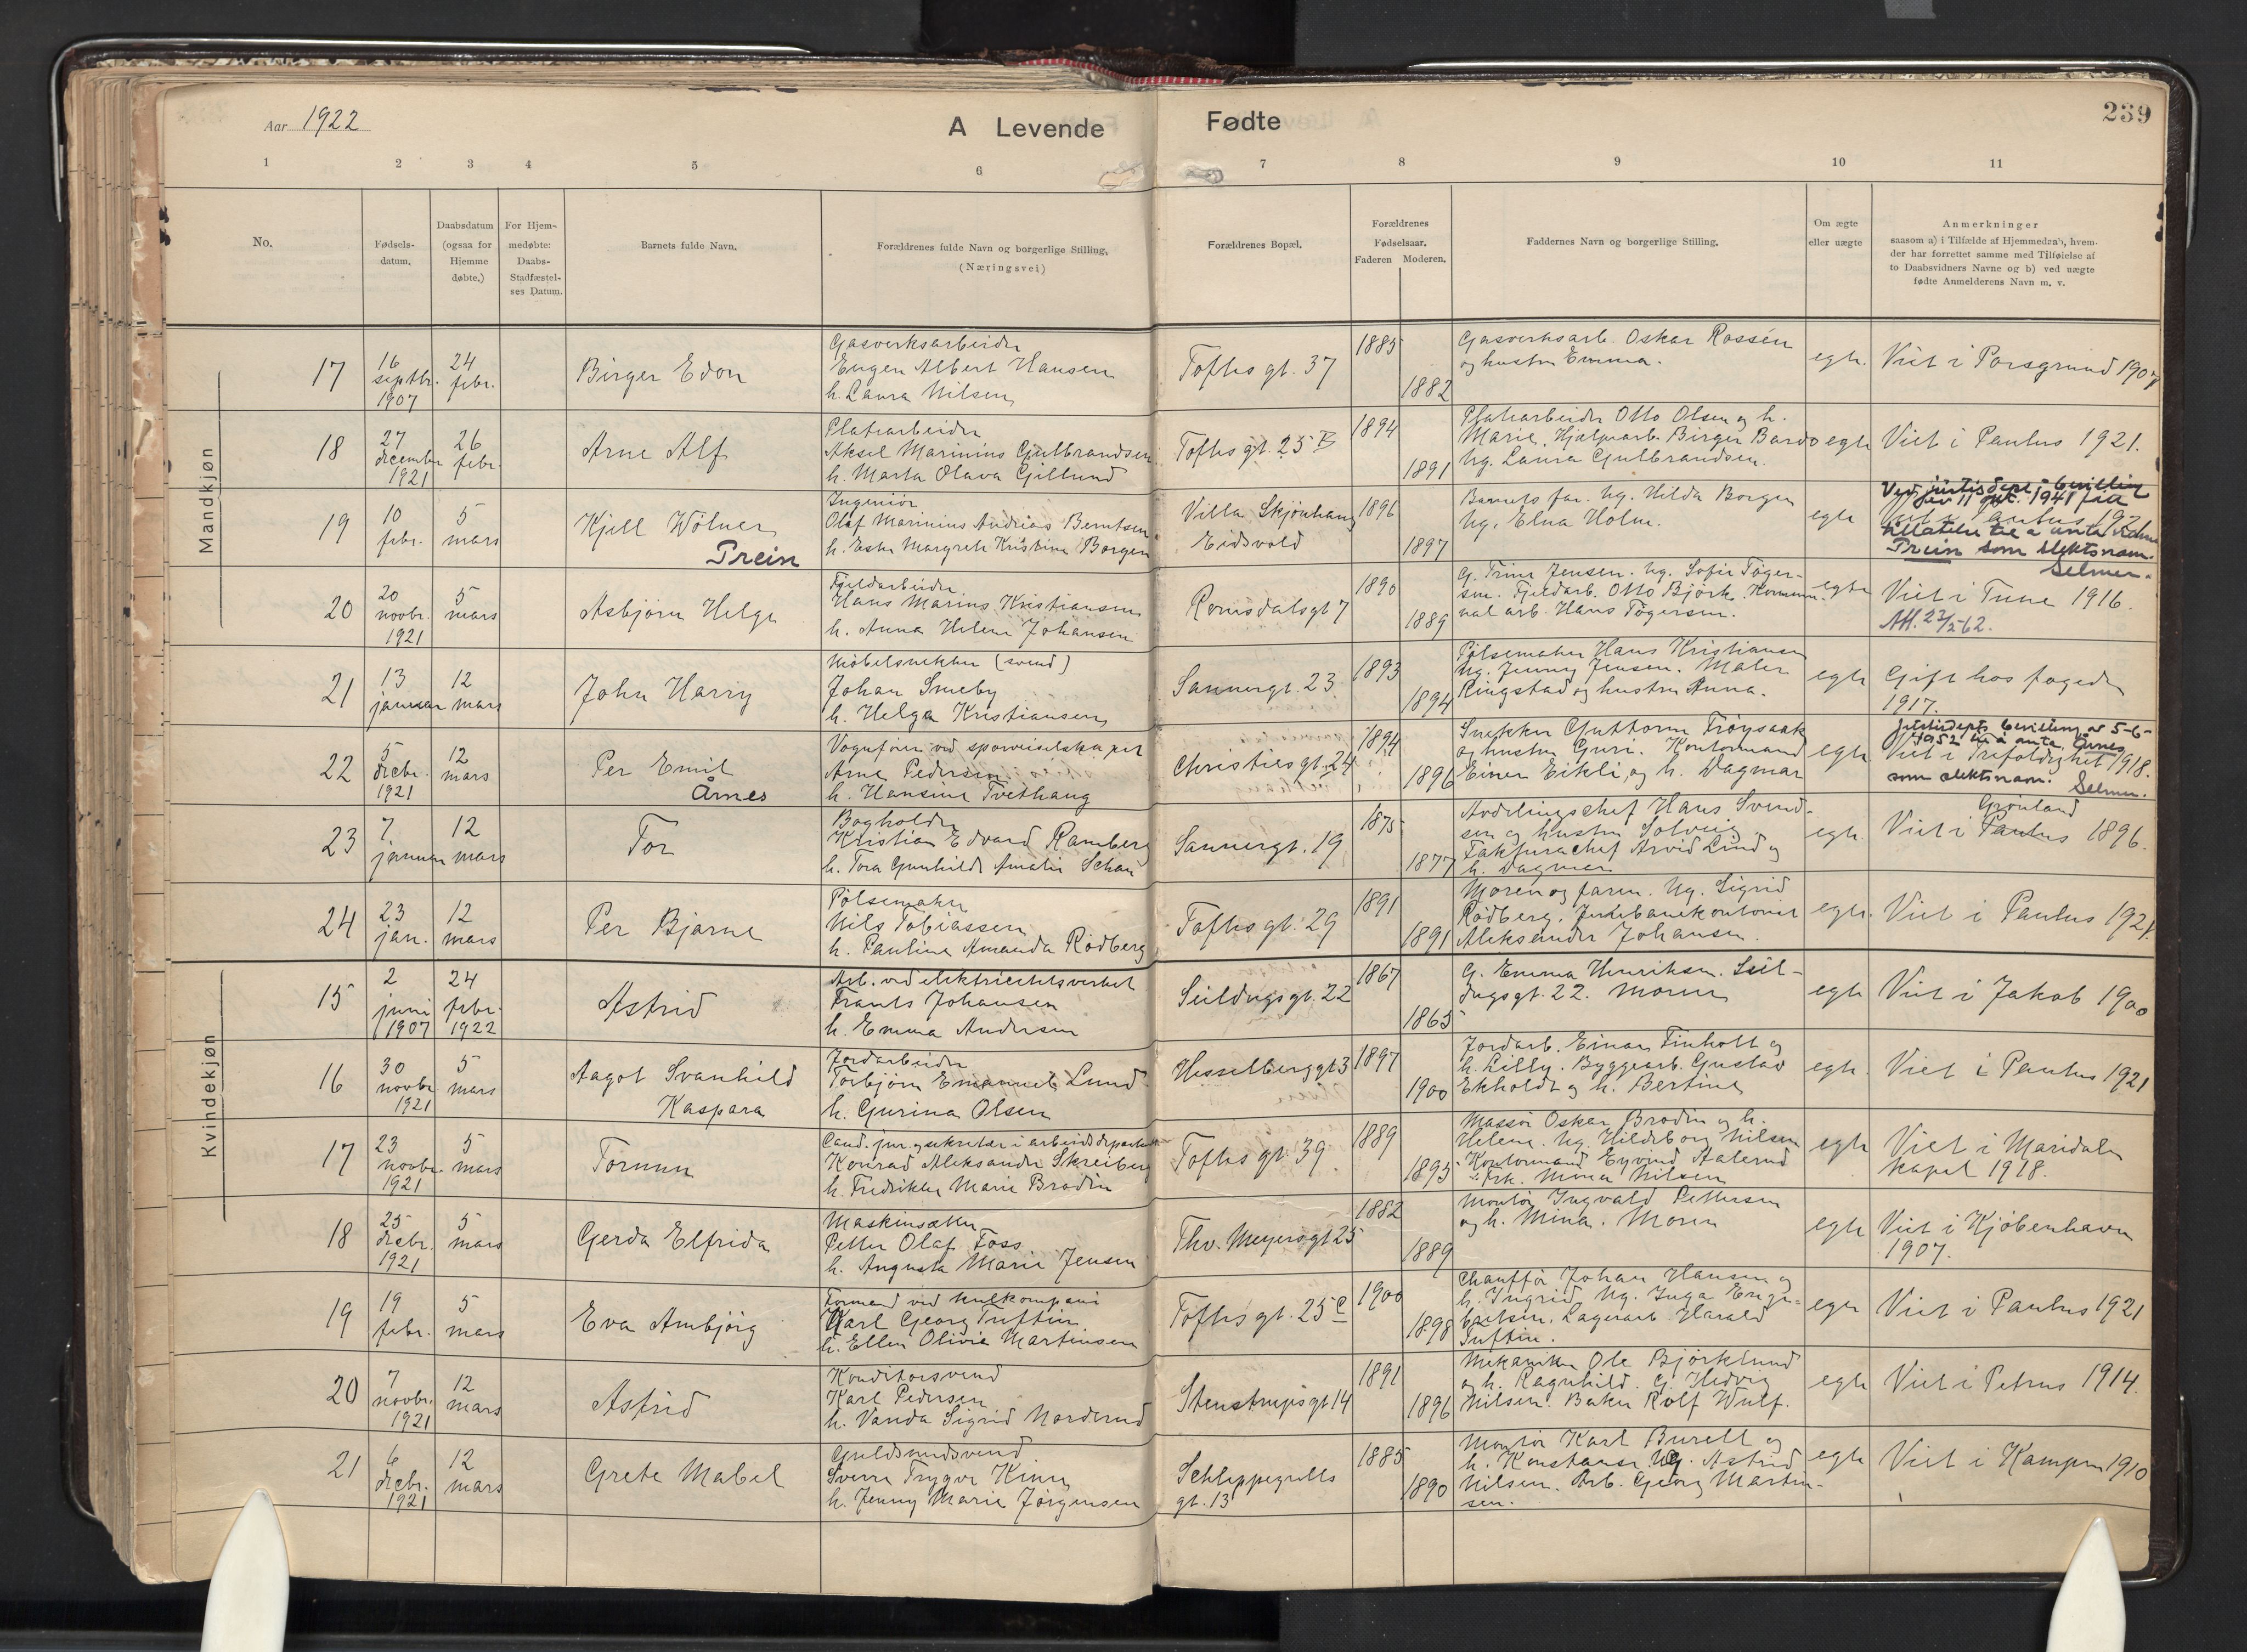 Aar 1922
A Levende Fødte
239
1 2 3 4 5 6 7 8 9 10 11
No.
Fødsels-
datum.
Daabsdatum
(ogsaa for
Hjemme
døbte.)
For Hjem-
medøbte:
Daabs-
Stadfæstel-
ses Datum.
Barnets fulde Navn.
Forældrenes fulde Navn og borgerlige Stilling.
(Næringsvei)
Forældrenes Bopæl.
Forældrenes
Fødselsaar.
Faderen Moderen.
Faddernes Navn og borgerlige Stilling.
Om ægte
eller uægte
Anmerkninger
saasom a) i Tilfælde af Hjemmedaab, hvem-
der har forrettet samme med Tilføielse af
to Daabsvidners Navne og b) ved uægte
fødte Anmelderens Navn m. v.
Mandkjøn
17
16
septbr.
1907
24
febr.
Birger Edon
Gasverksarbeider
Eugen Albert Hansen
h. Laura Nilsen
Toftes gt. 37
1885
1882
Gasverksarb. Oskar Rossén
og hustru Emma.
egte.
Viet i Porsgrund 1907
18
27
december
1921
26
febr.
Arne Alf
Platearbeider
Aksel Marinius Gulbrandsen
h. Marta Olava Gillund
Toftes gt. 25 B
1894
1891
Platearbeider Otto Olsen og h.
Marie. Hjelpearb. Birger Bardo
Ug. Laura Gulbrandsen.
egte
Viet i Paulus 1921.
19
10
febr.
5
mars
Kjell Wölner
Prein
Ingeniør
Olaf Marinius Andreas Berntsen
h. Ester Margrete Kristine Borgen
Villa Skjönhaug
Eidsvold
1896
1897
Barnets far. Ug. Hilda Borgen
Ug. Elna Holm.
egte
Ved justisdept. bevilling
av 11 okt. 1941 fra
tillatelse til å anta navnet
Prein som slektsnavn.
Selmer.
20
20
novbr.
1921
5
mars
Asbjørn Helge
Fjeldarbeider
Hans Marius Kristiansen
h. Anna Helene Johansen
Romsdalsgt 7
1890
1889
G. Trine Jensen. Ug. Sofie Töger-
sen. Fjeldarb. Otto Björk. Kommu-
nal arb. Hans Tögersen.
egte
Viet i Tune 1916.
Att. 22/5-62.
21
13
januar
12
mars
John Harry
Möbelsnekker (svend)
Johan Smeby
h. Helga Kristiansen
Sannergt. 23
1893
1894
Pölsemaker Hans Kristiansen
Ug. Jenny Jensen. Maler
Ringstad og hustru Anna.
egte
Gift hos fogden
1917.
22
5
decbr.
1921
12
mars
Per Emil
Årnes
Vognfører ved sporveiselskapet
Arne Pedersen
h. Hansine Tvethaug
Christiesgt. 24
1894
1896
Snekker Guttorm Fröysaak
og hustru Guri. Kontormand
Einer Eikli, og h. Dagmar
egte
Justisdepts bevilling av 5-6-
1952 til å anta Årnes
Viet i Trefoldighet 1918.
som slektsnavn. Selmer.
23
7
januar
12
mars
Tor
Bogholder
Kristian Edvard Ramberg
h. Tora Gunhilde Amalie Schau
Sannergt. 19
1875
1877
Avdelingschef Hans Svend-
sen og hustru Solveig
Fakturachef Arvid Lind og
h. Dagmar.
egte.
Grönland
Viet i Paulus 1896.
24
23
jan.
12
mars
Per Bjarne
Pölsemaker
Nils Tobiassen
h. Pauline Amanda Rödberg
Toftes gt. 29
1891
1891
Moren og faren. Ug. Sigrid
Rödberg. Jernbanekontorist
Aleksander Johansen.
egte.
Viet i Paulus 1921.
Kvindekjøn
15
2
juni
1907
24
febr.
1922
Astrid
Arb. ved elektricitetsverket
Frants Johansen
h. Emma Andersen
Seildugsgt. 22
1867
1865
G. Emma Henriksen. Seil-
dugsgt. 22. Moren
egte
Viet i Jakob 1900
16
30
novbr.
1921
5
mars
Aagot Svanhild
Kaspara
Jordarbeider
Torbjörn Emanuel Lund
h. Gurina Olsen
Hesselberggt 3
1897
1900
Jordarb. Einar Finholt og
h. Lilly. Byggearb. Gustav
Ekholdt og h. Bertine
egte.
Viet i Paulus 1921
17
23
novbr.
1921
5
mars
Torunn
Cand. jur. og sekretær i arbeidsdepartementet
Konrad Aleksander Skreiberg
h. Fredrikke Marie Brodin
Toftes gt. 39.
1889
1895
Massör Oskar Brodin og h.
Helene. Ug. Hildeborg Nilsen
Kontormand Eyvind Aalerud
Frk. Mona Nilsen
egte
Viet i Maridalen
kapel 1918.
18
25
decbr.
1921
5
mars
Gerda Elfrida
Maskinsætter
Petter Olaf Foss
h. Augusta Marie Jensen
Thv. Meyersgt 25
1882
1889
Montör Ingvald Pettersen
og h. Mina. Moren
egte
Viet i Kjöbenhavn
1907.
19
19
febr.
5
mars
Eva Ambjörg
Formand ved kulkompani
Karl Georg Tuftin
h. Ellen Olivie Martinsen
Toftes gt. 25 C
1900
1898
Chauffør Johan Hansen og
h. Ingrid. Ug. Inga Enge-
bretsen. Lagerarb. Harald
Tuftin.
egte
Viet i Paulus 1921
20
7
novbr.
1921
12
mars
Astrid
Konditorsvend
Karl Pedersen
h. Vanda Sigrid Norderud
Stenstrupsgt 14
1891
1896
Mekaniker Ole Björklund
og h. Ragnhild. G. Hedvig
Nilsen. Baker Rolf Wulf.
egte
Viet i Petrus 1914.
21
6
decbr.
1921
12
mars
Grete Mabel
Guldsmedsvend
Sverre Trygve Kinn
h. Jenny Marie Jörgensen
Schleppegrells
gt. 13
1885
1890
Montör Karl Burell og
h. Konstanse. Ug. Astrid
Nilsen. Arb. Georg Martin-
sen.
egte
Viet i Kampen 1910